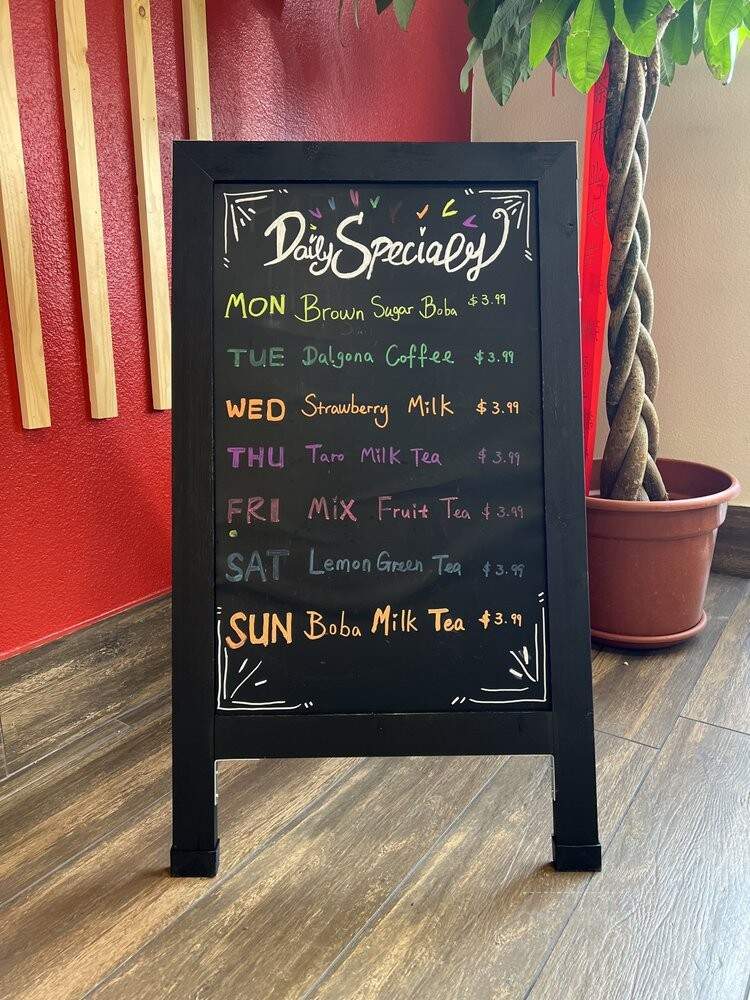 Daily Specialy
MON Brown Sugar Boba $3.99
TUE Dalgona Coffee $3.99
WED Strawberry Milk $3.99
THU Taro Milk Tea $3.99
FRI Mix Fruit Tea $3.99
SAT Lemon Green Tea $3.99
SUN Boba Milk Tea $3.99